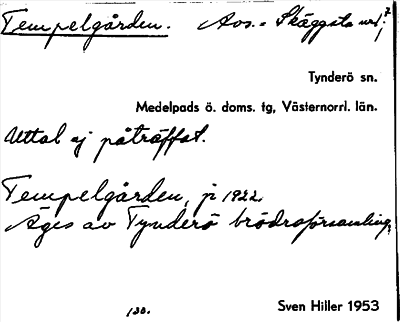 Tempelgården. Avs. = Skäggsta nr 1
Tynderö sn.
Medelpads ö. doms. tg, Västernorrl. län.
Uttal ej påträffat.
Tempelgården, jr 1922.
Äges av Tynderö brödraförsamling.
138.
Sven Hiller 1953